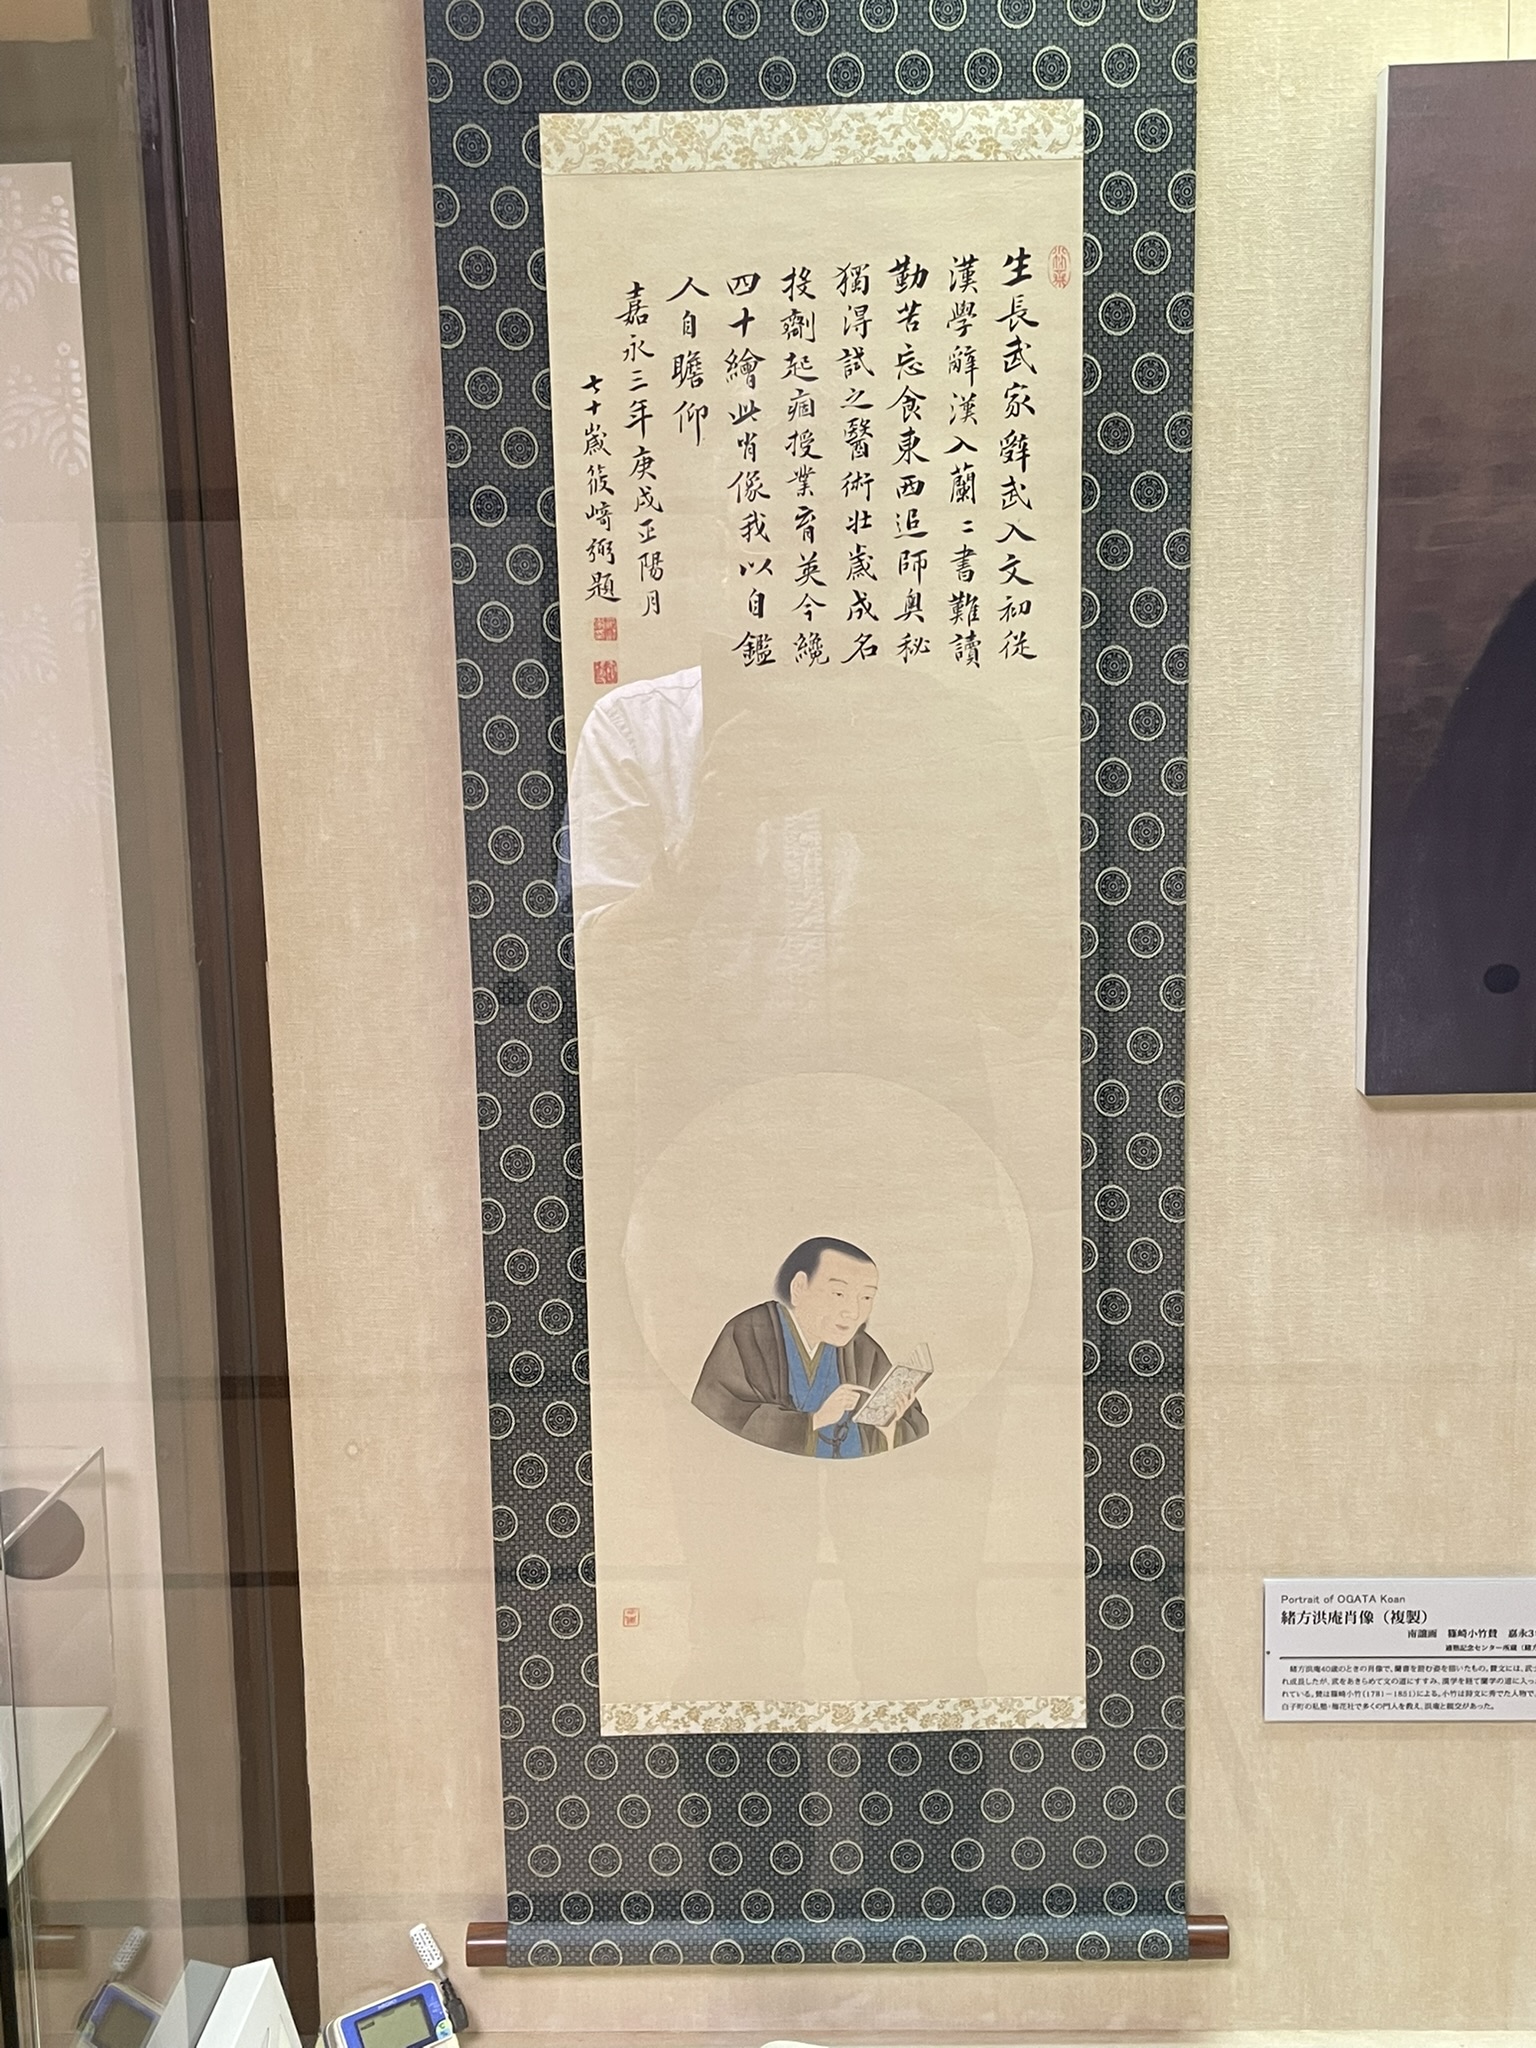 生長武家辭武入文初従
漢學辭漢入蘭〻書難讀
勤苦忘食東西追師奥秘
獨得試之醫術壮歳成名
投劑起痼授業育英今纔
四十繪此肖像我以自鑑
人自瞻仰
嘉永三年庚戌正陽月
七十歳筱﨑弼題
Portrait of OGATA Koan
緒方洪庵肖像（複製）
南譲画 篠崎小竹賛 嘉永3
適塾記念センター所蔵（緒方
緒方洪庵40歳のときの肖像で、蘭書を読む姿を描いたもの。賛文には、武士
れ成長したが、武をあきらめて文の道にすすみ、漢学を経て蘭学の道に入っ
れている。賛は篠崎小竹(1781－1851)による。小竹は詩文に秀でた人物で、
白子町の私塾・梅花社で多くの門人を教え、洪庵と親交があった。